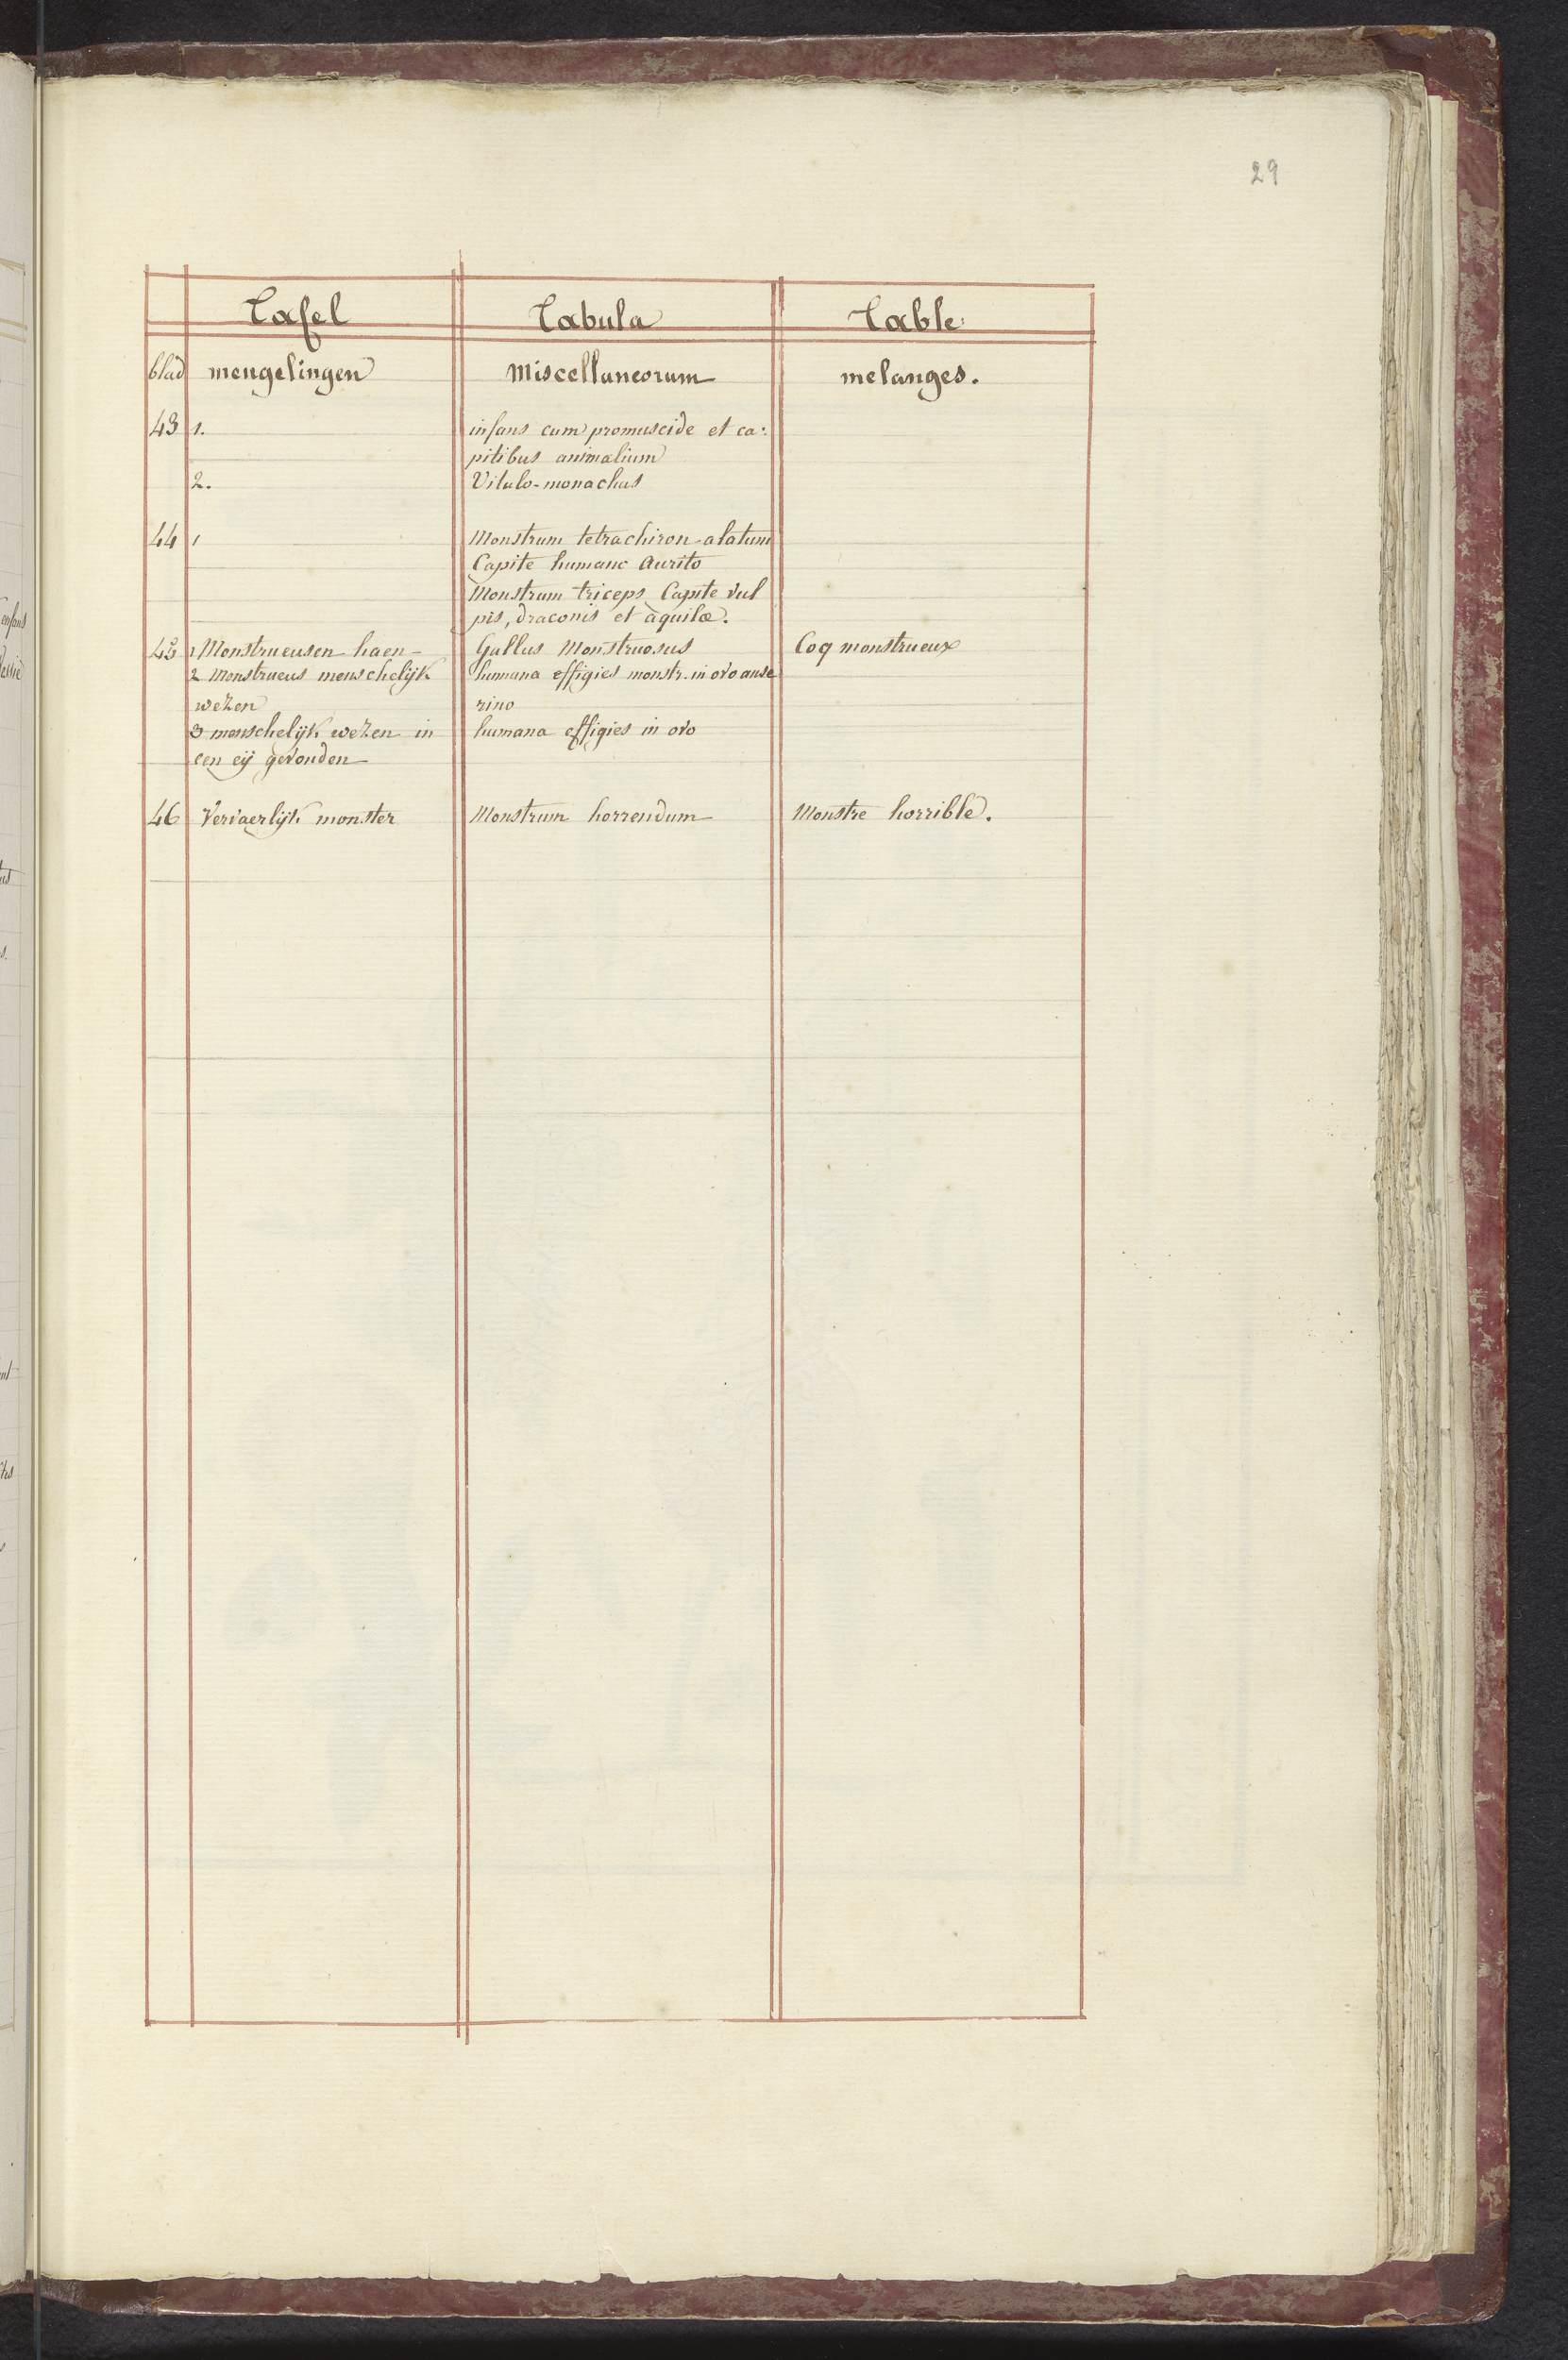 29
Tafel Tabula Table
blad mengelingen Miscellaneorum melanges.
43 1. infans cum promuscide et ca:
pitibus animalium
2. Vitulo-monachus
44 1 Monstrum tetrachiron alatum
Capite humano Aurito
Monstrum triceps Capite vul
pis, draconis et aquilæ.
45 1 Monstrueusen haen Gallus Monstruosus Coq monstrueux
2 Monstrueus menschelijk humana effigies monstr. in ovo anse
wezen rino
3 menschelijk wezen in humana effigies in ovo
een eÿ gevonden
46 Vervaerlijk monster Monstrum horrendum Monstre horrible.